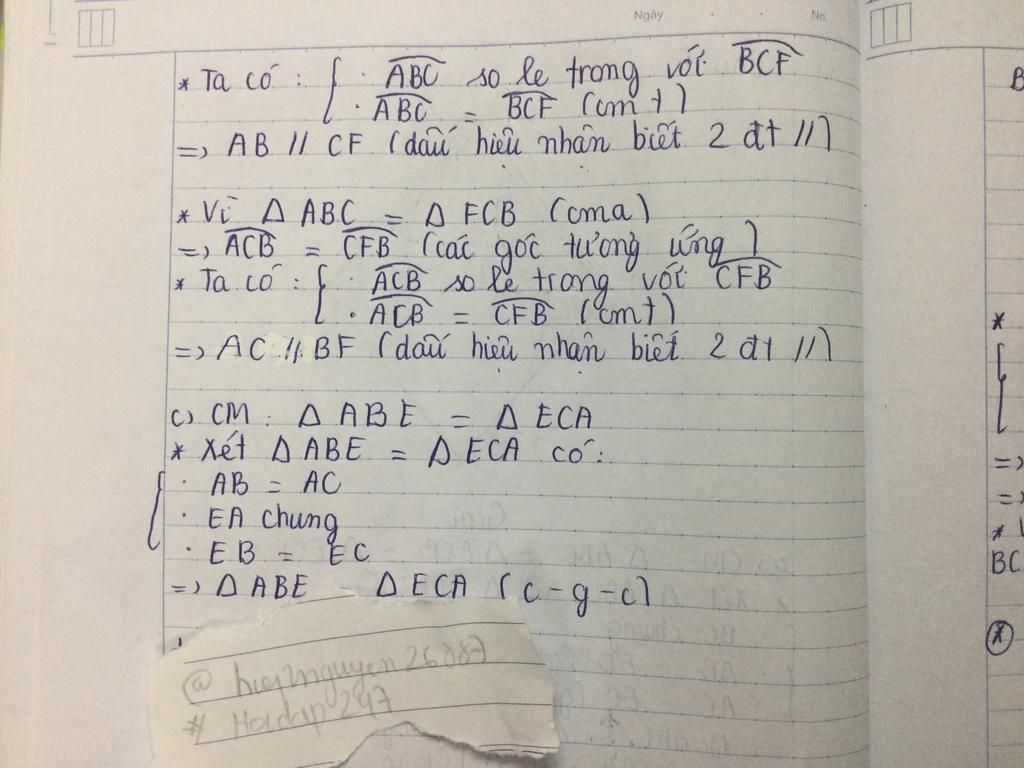 Ngày . . No.
* Ta có : { · ABC so le trong với BCF
· ABC = BCF (cmt)
=> AB // CF (dấu hiệu nhận biết 2 đt //)
* Vì Δ ABC = Δ FCB (cma)
=> ACB = CFB (các góc tương ứng)
* Ta có : { · ACB so le trong với CFB
· ACB = CFB (cmt)
=> AC // BF (dấu hiệu nhận biết 2 đt //)
c) CM : Δ ABE = Δ ECA
* Xét Δ ABE = Δ ECA có :
· AB = AC
· EA chung
· EB = EC
=> Δ ABE = Δ ECA (c-g-c)
# Hoidap247
B
*
=>
=>
*
BC
(*)